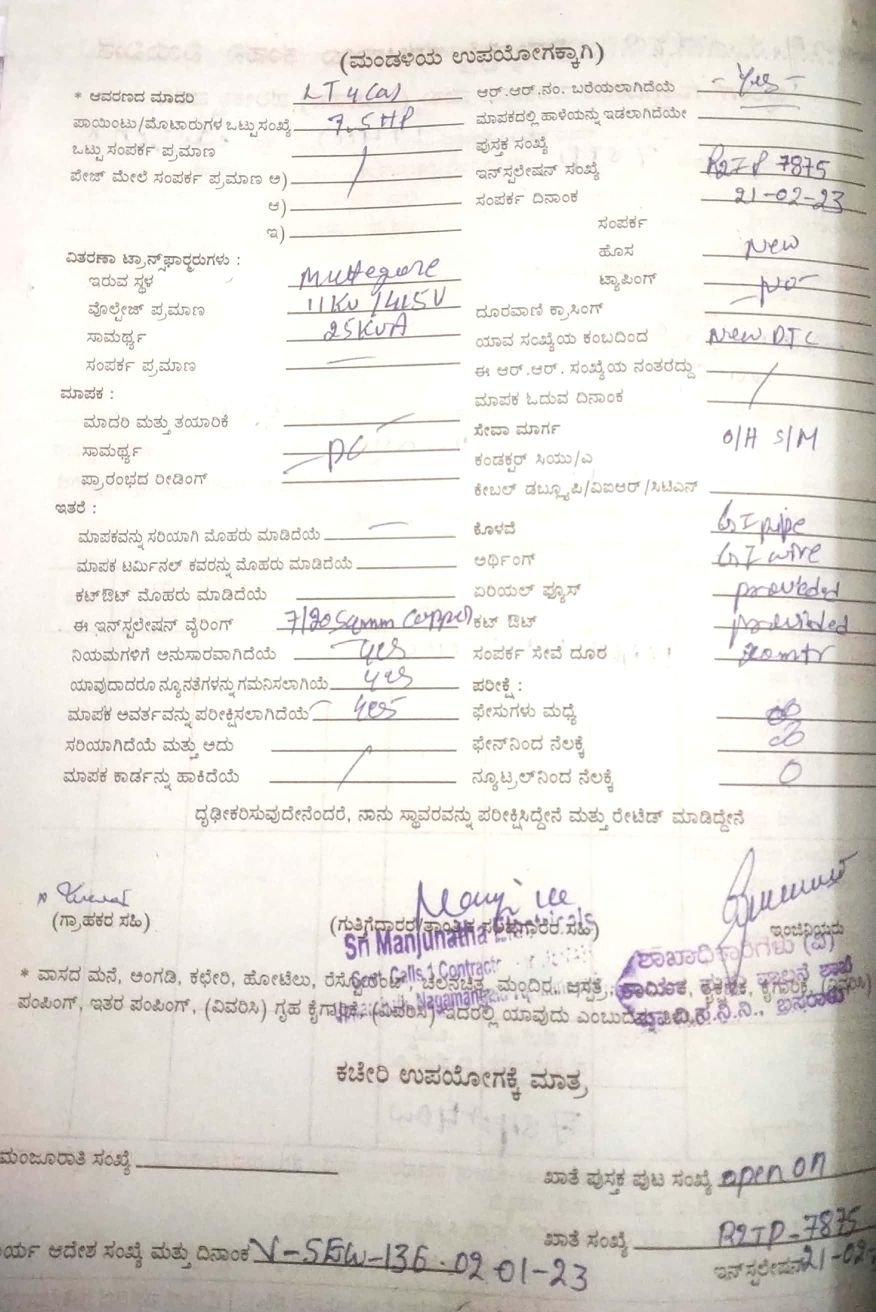 (ಮಂಡಳಿಯ ಉಪಯೋಗಕ್ಕಾಗಿ)
* ಆವರಣದ ಮಾದರಿ LT 4(a) ಆರ್.ಆರ್.ನಂ. ಬರೆಯಲಾಗಿದೆಯೆ - Yes -
ಪಾಯಿಂಟು/ಮೊಟಾರುಗಳ ಒಟ್ಟುಸಂಖ್ಯೆ 7.5HP ಮಾಪಕದಲ್ಲಿ ಹಾಳೆಯನ್ನು ಇಡಲಾಗಿದೆಯೇ
ಒಟ್ಟು ಸಂಪರ್ಕ ಪ್ರಮಾಣ ಪುಸ್ತಕ ಸಂಖ್ಯೆ
ಪೇಜ್ ಮೇಲೆ ಸಂಪರ್ಕ ಪ್ರಮಾಣ ಅ) ಇನ್‌ಸ್ಪಲೇಷನ್ ಸಂಖ್ಯೆ R2IP 7875
ಆ) ಸಂಪರ್ಕ ದಿನಾಂಕ 21-02-23
ಇ) ಸಂಪರ್ಕ
ವಿತರಣಾ ಟ್ರಾನ್ಸ್‌ಫಾರ್‍ಮರುಗಳು : ಹೊಸ New
ಇರುವ ಸ್ಥಳ Muttegere ಟ್ಯಾಪಿಂಗ್ No
ವೊಲ್ಟೇಜ್ ಪ್ರಮಾಣ 11KV /415V ದೂರವಾಣಿ ಕ್ರಾಸಿಂಗ್
ಸಾಮರ್ಥ್ಯ 25KVA ಯಾವ ಸಂಖ್ಯೆಯ ಕಂಬದಿಂದ New DTC
ಸಂಪರ್ಕ ಪ್ರಮಾಣ ಈ ಆರ್.ಆರ್. ಸಂಖ್ಯೆಯ ನಂತರದ್ದು
ಮಾಪಕ : ಮಾಪಕ ಓದುವ ದಿನಾಂಕ
ಮಾದರಿ ಮತ್ತು ತಯಾರಿಕೆ ಸೇವಾ ಮಾರ್ಗ O/H S/M
ಸಾಮರ್ಥ್ಯ DC ಕಂಡಕ್ಟರ್ ಸಿಯು/ಎ
ಪ್ರಾರಂಭದ ರೀಡಿಂಗ್ ಕೇಬಲ್ ಡಬ್ಲ್ಯೂಪಿ/ವಿಐಆರ್/ಸಿಟಿಎಸ್
ಇತರೆ :
ಮಾಪಕವನ್ನು ಸರಿಯಾಗಿ ಮೊಹರು ಮಾಡಿದೆಯೆ ಕೊಳವೆ GI pipe
ಮಾಪಕ ಟರ್ಮಿನಲ್ ಕವರನ್ನು ಮೊಹರು ಮಾಡಿದೆಯೆ ಅರ್ಥಿಂಗ್ GI wire
ಕಟ್‌ಔಟ್ ಮೊಹರು ಮಾಡಿದೆಯೆ ಏರಿಯಲ್ ಫ್ಯೂಸ್ provided
ಈ ಇನ್‌ಸ್ಪಲೇಷನ್ ವೈರಿಂಗ್ 7/20 Sqmm Copper ಕಟ್ ಔಟ್ provided
ನಿಯಮಗಳಿಗೆ ಅನುಸಾರವಾಗಿದೆಯೆ yes ಸಂಪರ್ಕ ಸೇವೆ ದೂರ 20mtr
ಯಾವುದಾದರೂ ನ್ಯೂನತೆಗಳನ್ನು ಗಮನಿಸಲಾಗಿಯೆ yes ಪರೀಕ್ಷೆ :
ಮಾಪಕ ಅವರ್ತವನ್ನು ಪರೀಕ್ಷಿಸಲಾಗಿದೆಯೆ yes ಫೇಸುಗಳು ಮಧ್ಯೆ ∞
ಸರಿಯಾಗಿದೆಯೆ ಮತ್ತು ಅದು ಫೇಸ್‌ನಿಂದ ನೆಲಕ್ಕೆ ∞
ಮಾಪಕ ಕಾರ್ಡನ್ನು ಹಾಕಿದೆಯೆ ನ್ಯೂಟ್ರಲ್‌ನಿಂದ ನೆಲಕ್ಕೆ 0
ದೃಢೀಕರಿಸುವುದೇನೆಂದರೆ, ನಾನು ಸ್ಥಾವರವನ್ನು ಪರೀಕ್ಷಿಸಿದ್ದೇನೆ ಮತ್ತು ರೇಟೆಡ್ ಮಾಡಿದ್ದೇನೆ
(ಗ್ರಾಹಕರ ಸಹಿ) (ಗುತ್ತಿಗೆದಾರರ/ತಾಂತ್ರಿಕ ಸಹಿ) ಇಂಜಿನಿಯರು
Sri Manjunatha Electricals
ಶಾಖಾಧಿಕಾರಿಗಳು (ವಿ)
* ವಾಸದ ಮನೆ, ಅಂಗಡಿ, ಕಛೇರಿ, ಹೋಟೆಲು, ರೆಸ್ಟೋರೆಂಟ್, ಚಲನಚಿತ್ರ ಮಂದಿರ, ಆಸ್ಪತ್ರೆ,
ಪಂಪಿಂಗ್, ಇತರ ಪಂಪಿಂಗ್, (ವಿವರಿಸಿ) ಗೃಹ ಕೈಗಾರಿಕೆ, (ವಿವರಿಸಿ) ಇದರಲ್ಲಿ ಯಾವುದು
ಕಚೇರಿ ಉಪಯೋಗಕ್ಕೆ ಮಾತ್ರ
ಮಂಜೂರಾತಿ ಸಂಖ್ಯೆ
ಖಾತೆ ಪುಸ್ತಕ ಪುಟ ಸಂಖ್ಯೆ open on
ಖಾತೆ ಸಂಖ್ಯೆ R2IP-7875
ರ್ಯ ಆದೇಶ ಸಂಖ್ಯೆ ಮತ್ತು ದಿನಾಂಕ V-SEW-136. 02-01-23
ಇನ್‌ಸ್ಪಲೇಷನ್ 21-02-